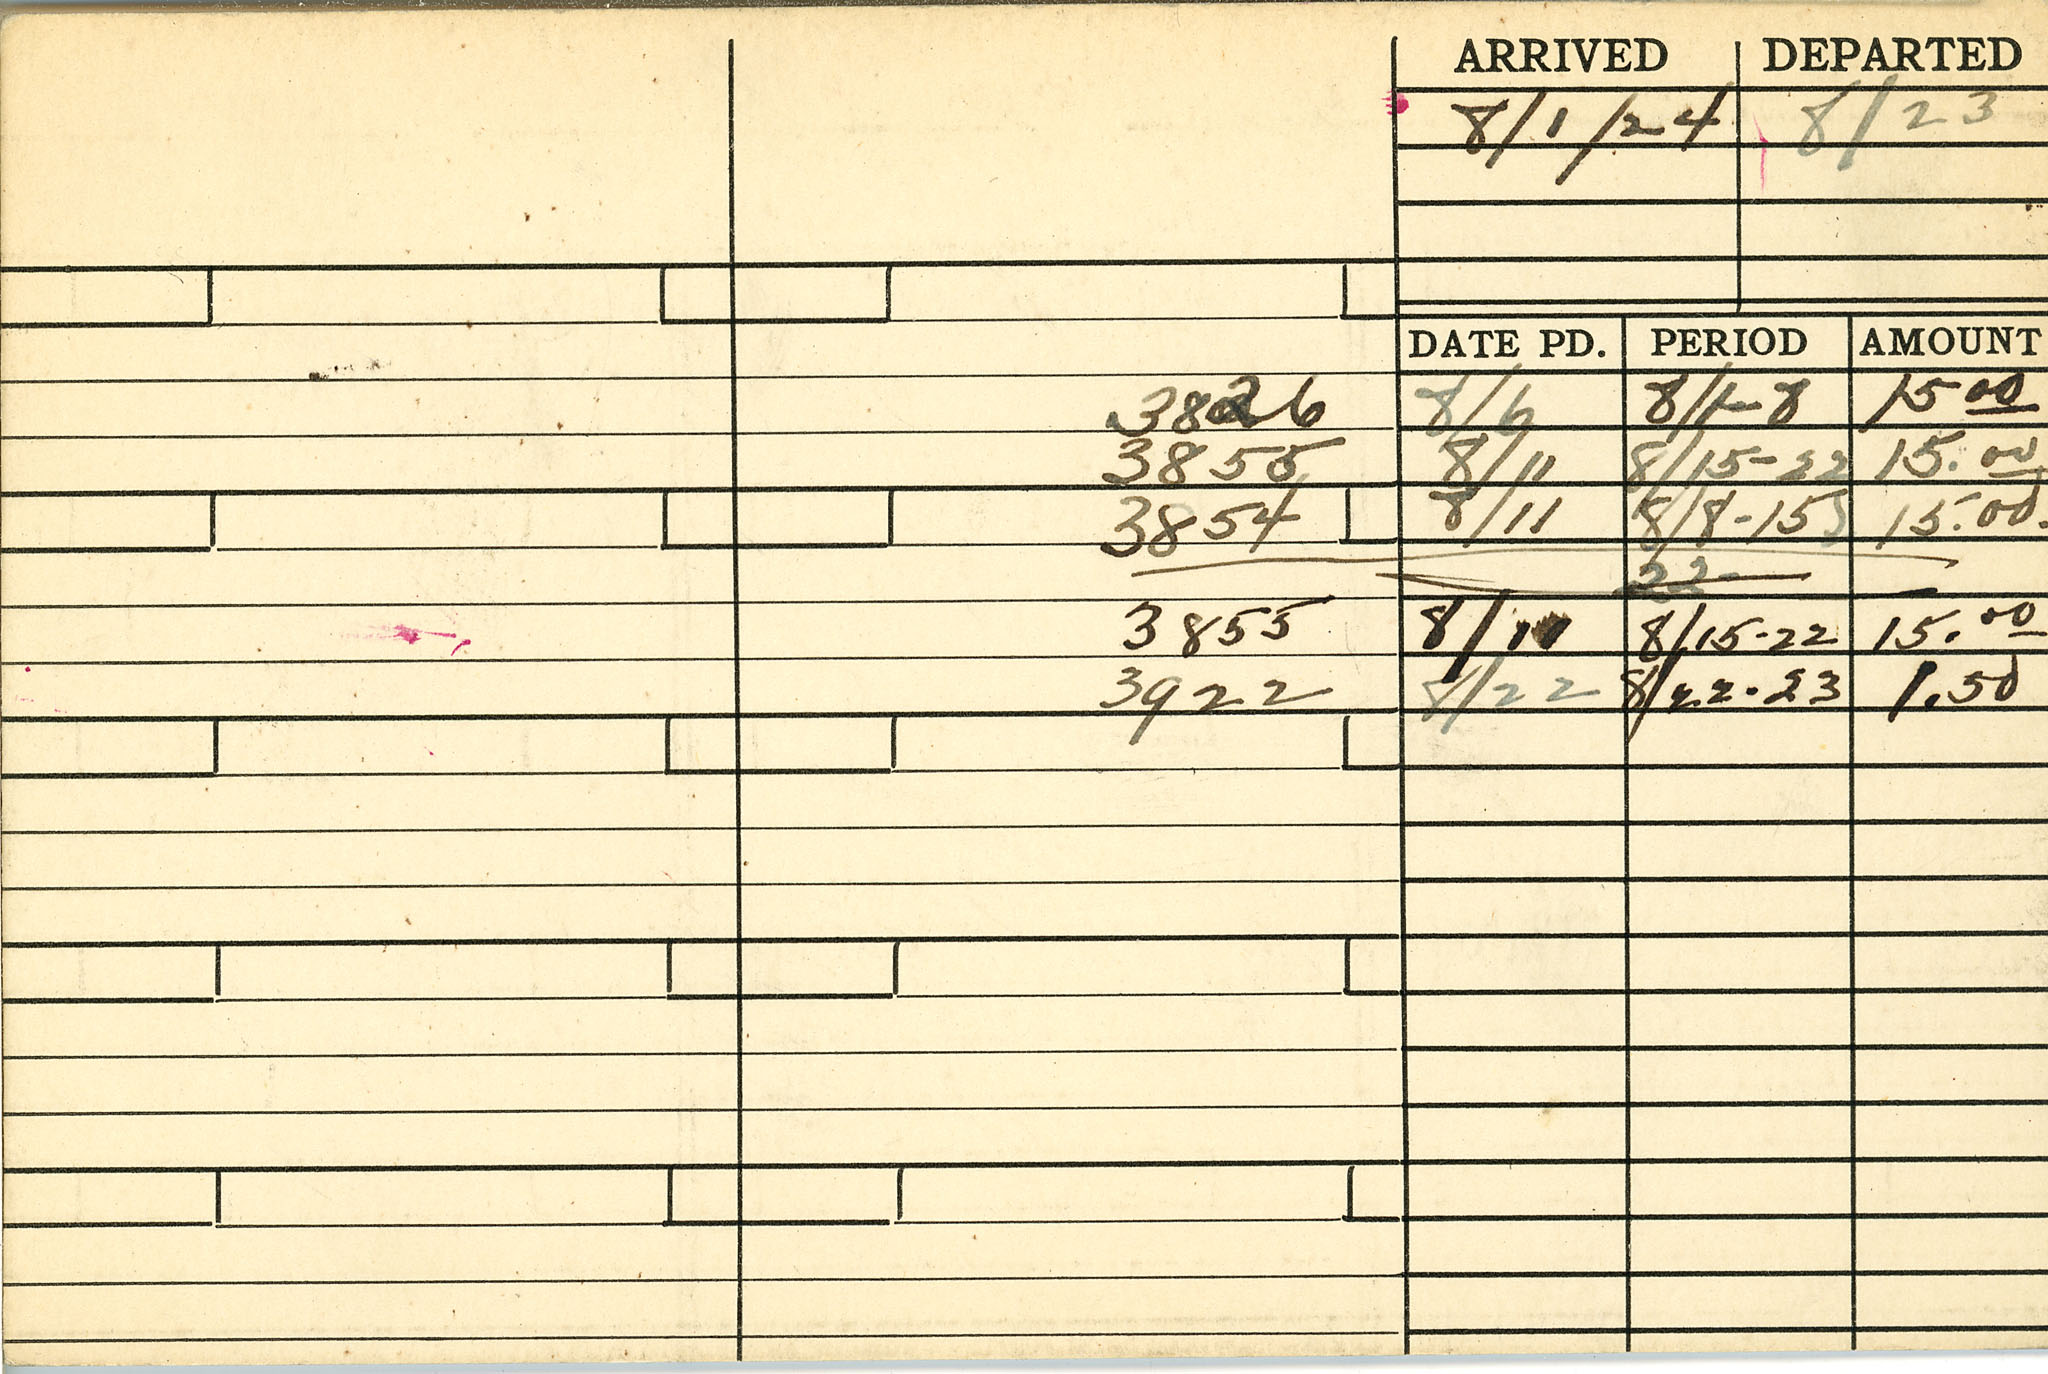 ARRIVED DEPARTED
8/1/24 8/23
DATE PD. PERIOD AMOUNT
3826 8/6 8/1-8 15 00
3855 8/11 8/15-22 15.00
3854 8/11 8/8-15 15.00
22-
3855 8/11 8/15-22 15.00
3922 8/22 8/22-23 1.50